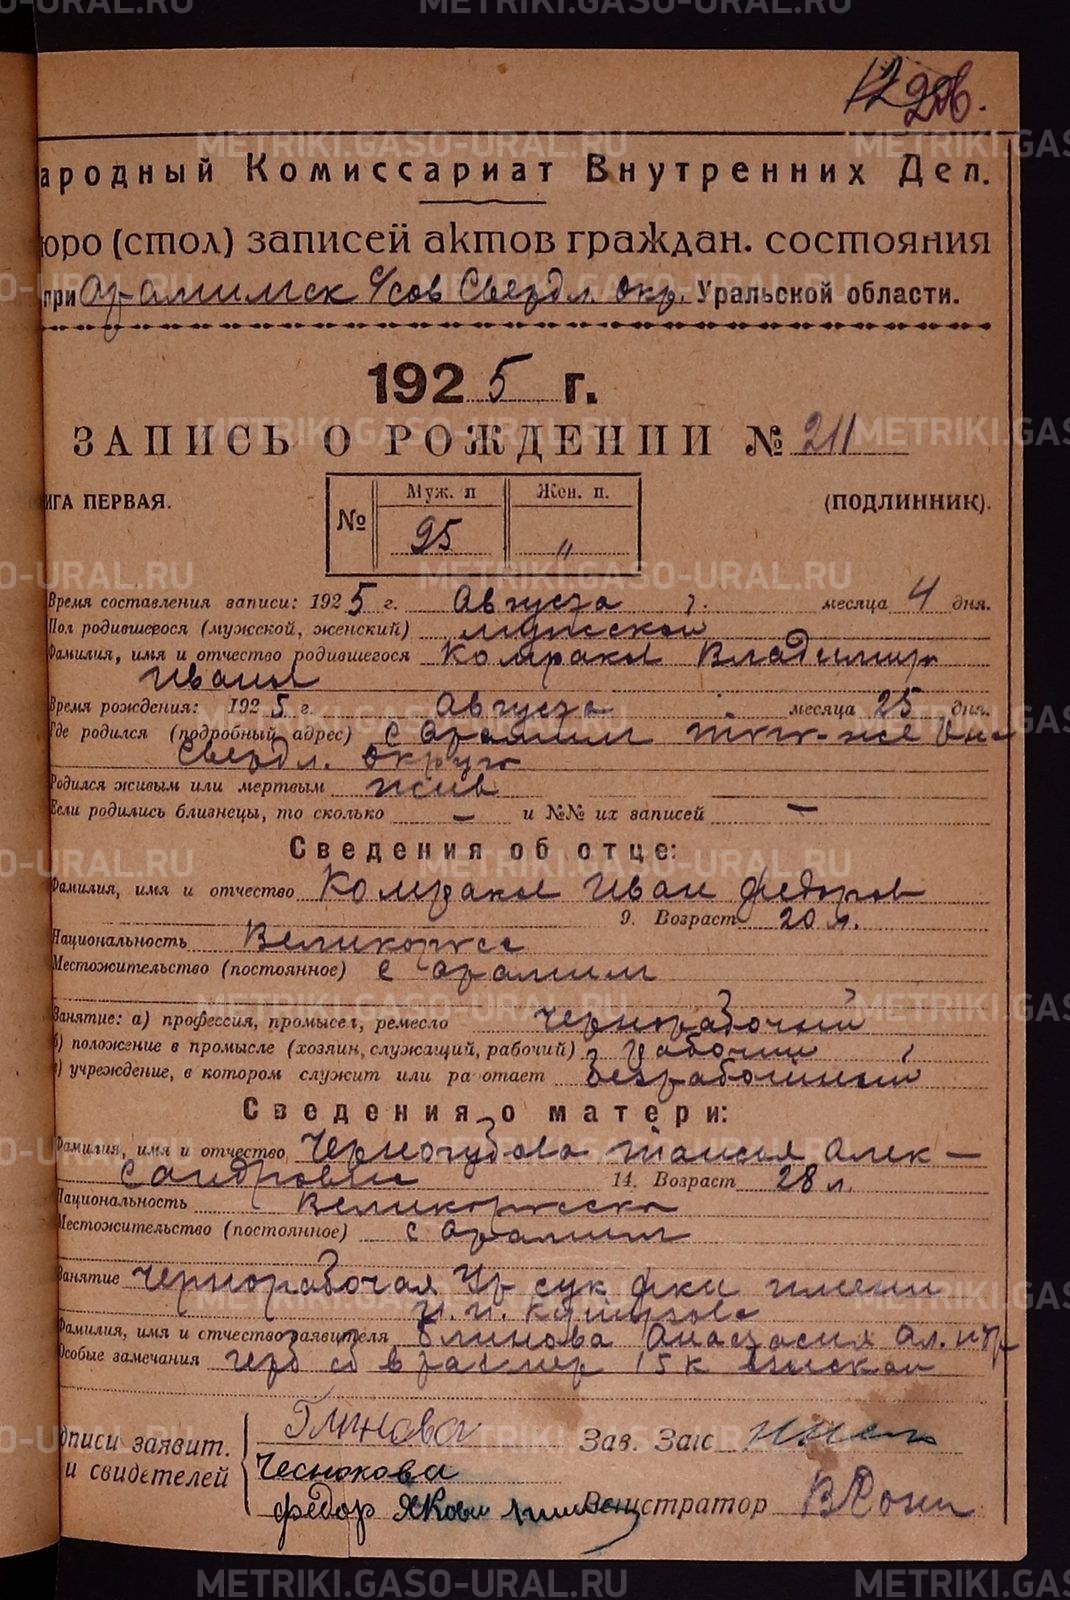 METRIKI.GASO-URAL.RU
ародный Комиссариат Внутренних Дел.
юро (стол) записей актов граждан. состояния
при Арамильск с/сов Свердл. окр. Уральской области.
1925 г.
ЗАПИСЬ О РОЖДЕНИИ № 211
ИГА ПЕРВАЯ.
(ПОДЛИННИК).
№ Муж. п Жен. п.
95 "
Время составления записи: 1925 г. Августа месяца 4 дня.
Пол родившегося (мужской, женский) мужской
Фамилия, имя и отчество родившегося Комраков Владимир
Иванов
Время рождения: 1925 г. Августа месяца 25 дня.
Где родился (подробный адрес) с Арамил
Свердл. округ
Родился живым или мертвым жив
Если родились близнецы, то сколько — и №№ их записей —
Сведения об отце:
Фамилия, имя и отчество Комраков Иван Федоров
9. Возраст 20 л.
Национальность Великоросс
Местожительство (постоянное) с Арамил
Занятие: а) профессия, промысел, ремесло чернорабочий
б) положение в промысле (хозяин, служащий, рабочий) рабочий
) учреждение, в котором служит или ра отает безработный
Сведения о матери:
Фамилия, имя и отчество Черногубова Таисия Алек-
сандровна 14. Возраст 28 л.
Национальность Великоросска
Местожительство (постоянное) с Арамил
Занятие чернорабочая сук фки имени
Фамилия, имя и отчество заявителя Блинова Анастасия
Особые замечания герб сб в размер 15 к взыскан
дписи заявит.
и свидетелей
Блинова
Чеснокова
Федор Яковл
Зав. Загс
Регистратор